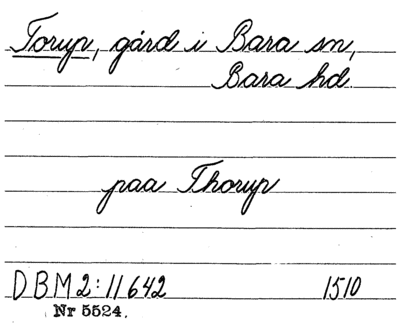 Toryp, gård i Bara sn,
Bara hd.
paa Thoryp
DBM2:11642 1510
Nr 5524.